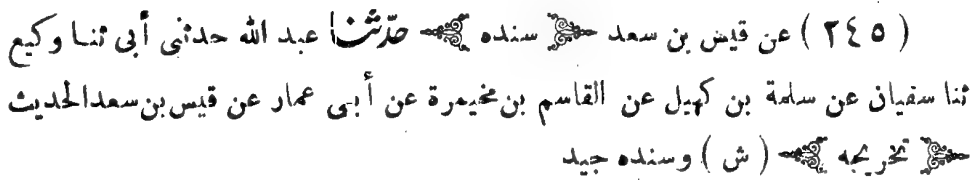 ( ٢٤٥ ) عن قيس بن سعد سنده حدّثنا عبد الله حدثنى أبى ثنا وكيع
ثنا سفيان عن سلمة بن كهيل عن القاسم بن مخيمرة عن أبى عمار عن قيس بن سعد الحديث
تخريجه ( ش ) وسنده جيد